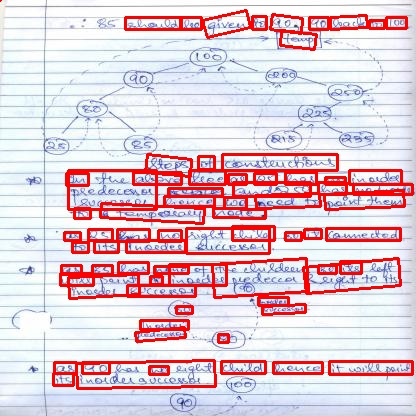 ∴ 85 should be given to 90, 90 back to 100
temp
100
90
200
80
250
225
25
85
215
235
Steps of constructions
In the above tree as 25 has no inorder
predecessor and 250 has not any
successor hence we need to point them
to a temporary node
as 25 has no right child so it connected
to its inorder successor
as 85 has none of the children so its left
will point to inorder predeccor & right to its
inorder successor
inorder
successor
inorder
predecessor
as 90 has no right child hence it will point
its inorder successor
100
90